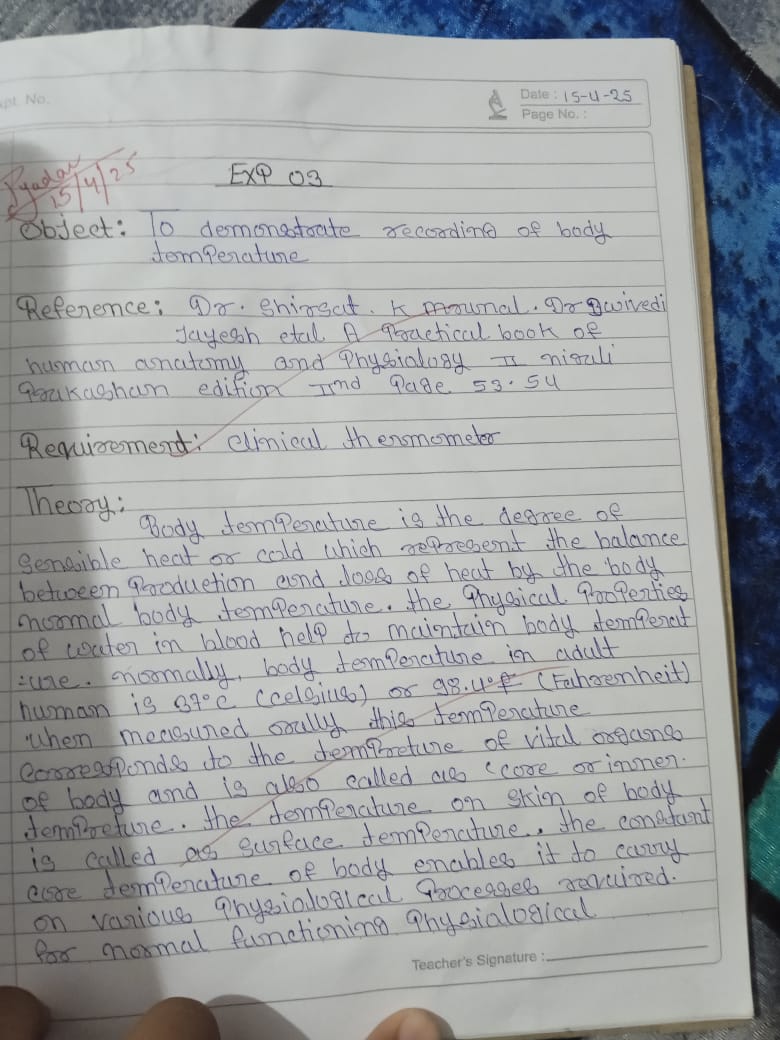 pt. No.
Date : 15-4-25
Page No. :
15/4/25
EXP 03
Object: To demonstrate recording of body
temperature
Reference: Dr. Shirsat. K Mrunal. Dr Dwivedi
Jayesh etal A Practical book of
human anatomy and Physiology II nirali
Prakashan edition IInd Page 53.54
Requirement: clinical thermometer
Theory:
Body temperature is the degree of
sensible heat or cold which represent the balance
between Production and loss of heat by the body
normal body temperature. the Physical Properties
of water in blood help to maintain body temperat
:ure. normally, body temperature in adult
human is 37°C (celsius) or 98.4°f (Fahrenheit)
when measured orally this temperature
corresponds to the tempreture of vital organs
of body and is also called as (core or inner.
tempreture. the temperature on skin of body
is called as surface temperature. the constant
core temperature of body enables it to carry
on various Physiological Processes required.
for normal functioning Physiological
Teacher's Signature :